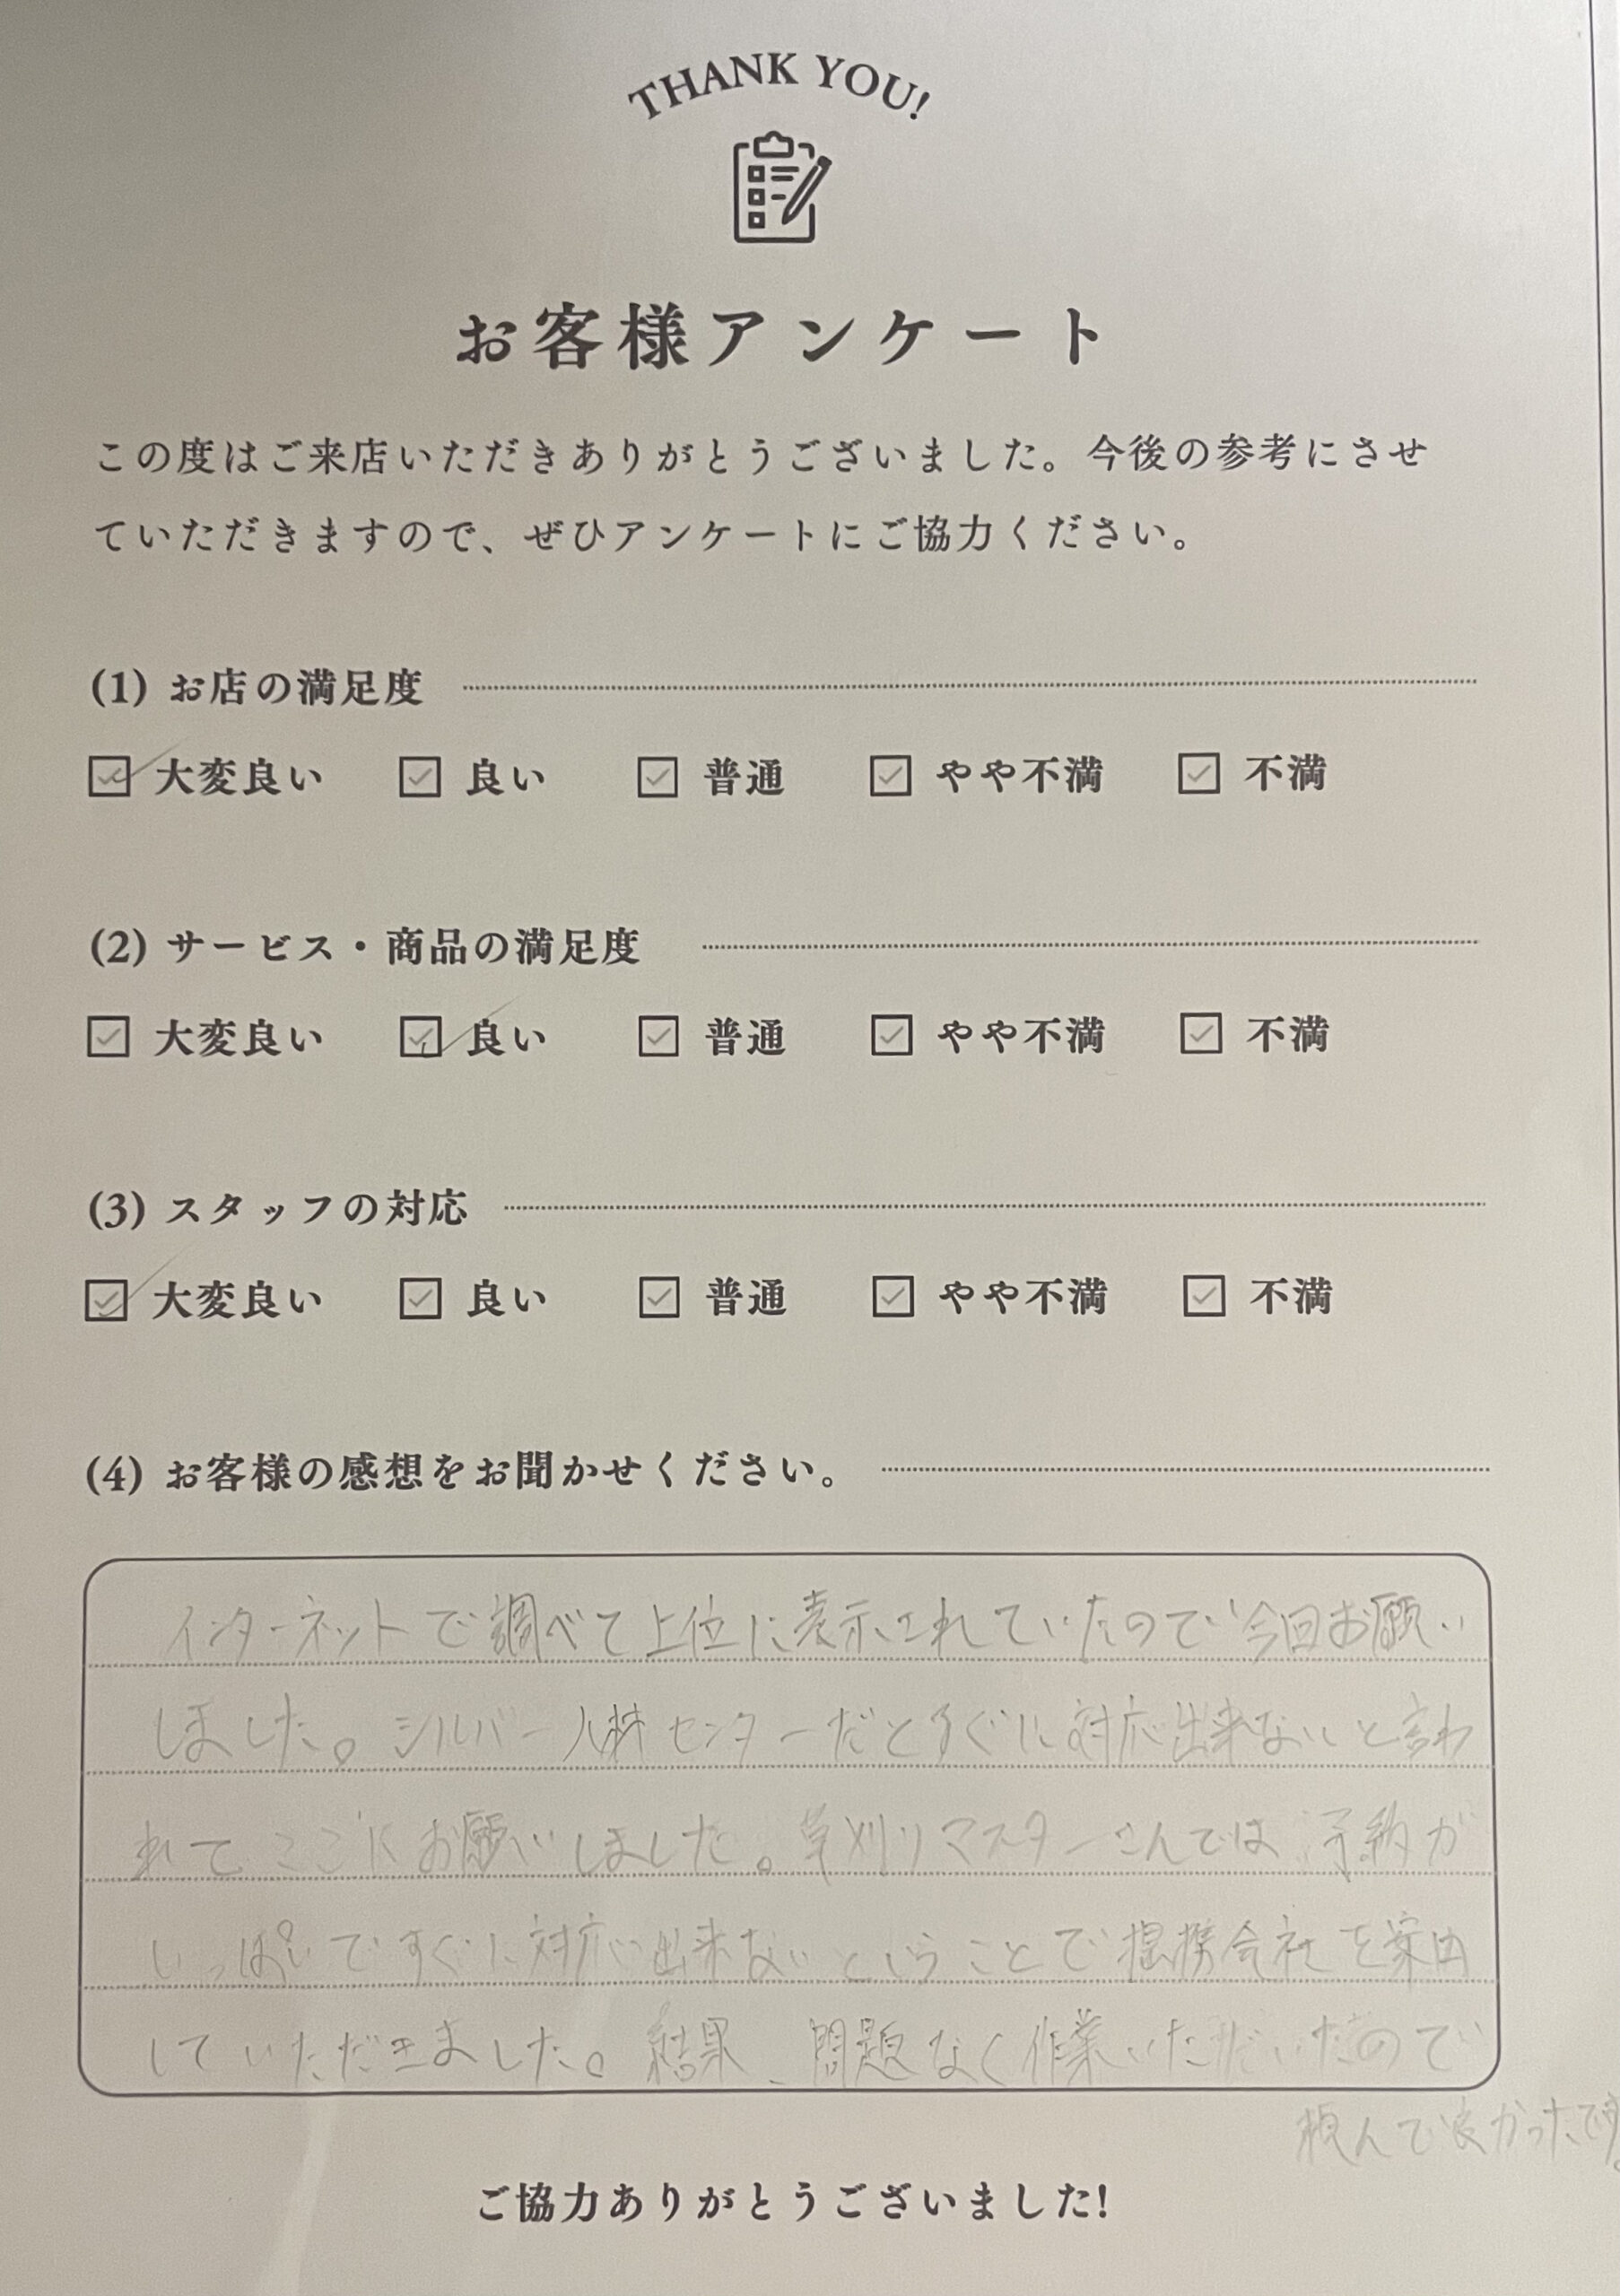 THANK YOU!
お客様アンケート
この度はご来店いただきありがとうございました。今後の参考にさせ
ていただきますので、ぜひアンケートにご協力ください。
(1) お店の満足度
大変良い 良い 普通 やや不満 不満
(2) サービス・商品の満足度
大変良い 良い 普通 やや不満 不満
(3) スタッフの対応
大変良い 良い 普通 やや不満 不満
(4) お客様の感想をお聞かせください。
インターネットで調べて上位に表示されていたので今回お願い
しました。シルバー人材センターだとすぐに対応出来ないと言わ
れてここにお願いしました。草刈りマスターさんでは予約が
いっぱいですぐに対応出来ないということで提携会社を案内
していただきました。結果、問題なく作業いただいたので
頼んで良かったです。
ご協力ありがとうございました!